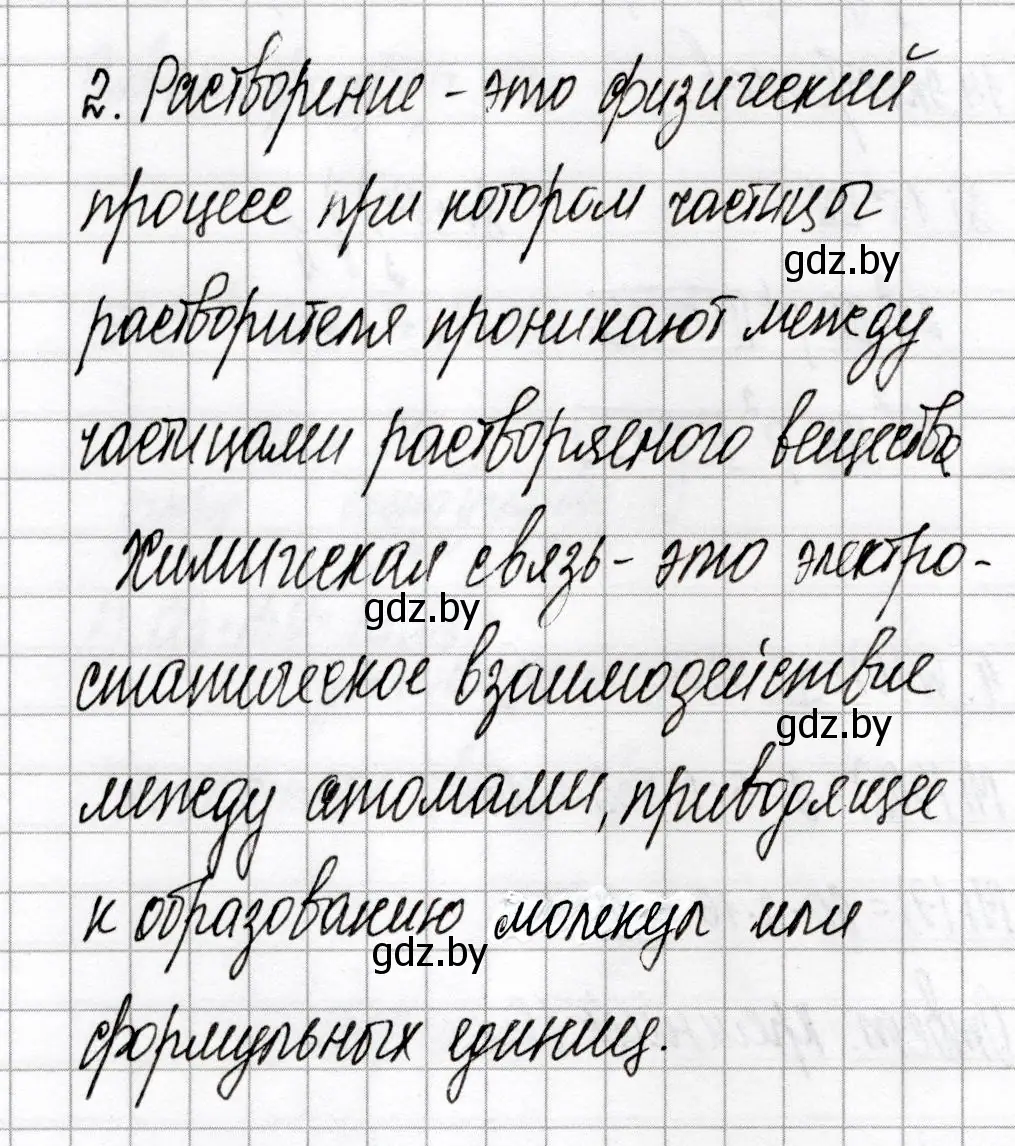 2. Растворение - это физический
процесс при котором частицы
gdz.by
растворителя проникают между
частицами растворяеного вещества.
Химическая связь - это электро-
gdz.by
статическое взаимодействие
gdz.by
между атомами, приводящее
к образованию молекул или
gdz.by
формульных единиц.